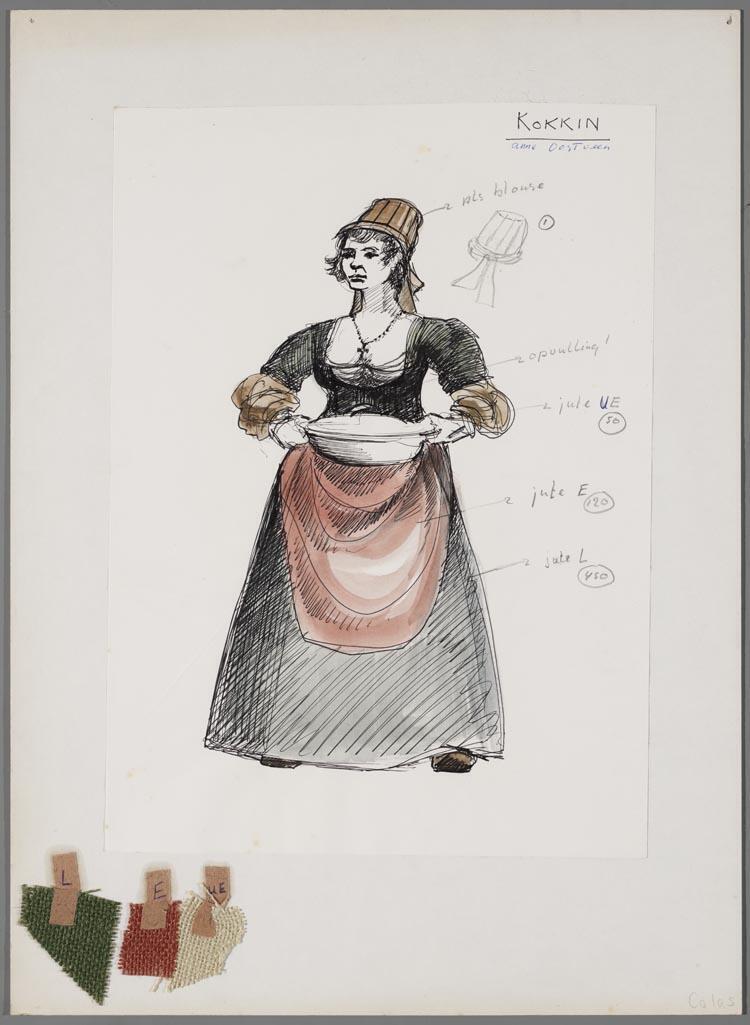 KOKKIN
anne Oostveen
als blouse
1
opvulling!
jute UE
50
jute E
120
jute L
450
L
E
UE
Calas